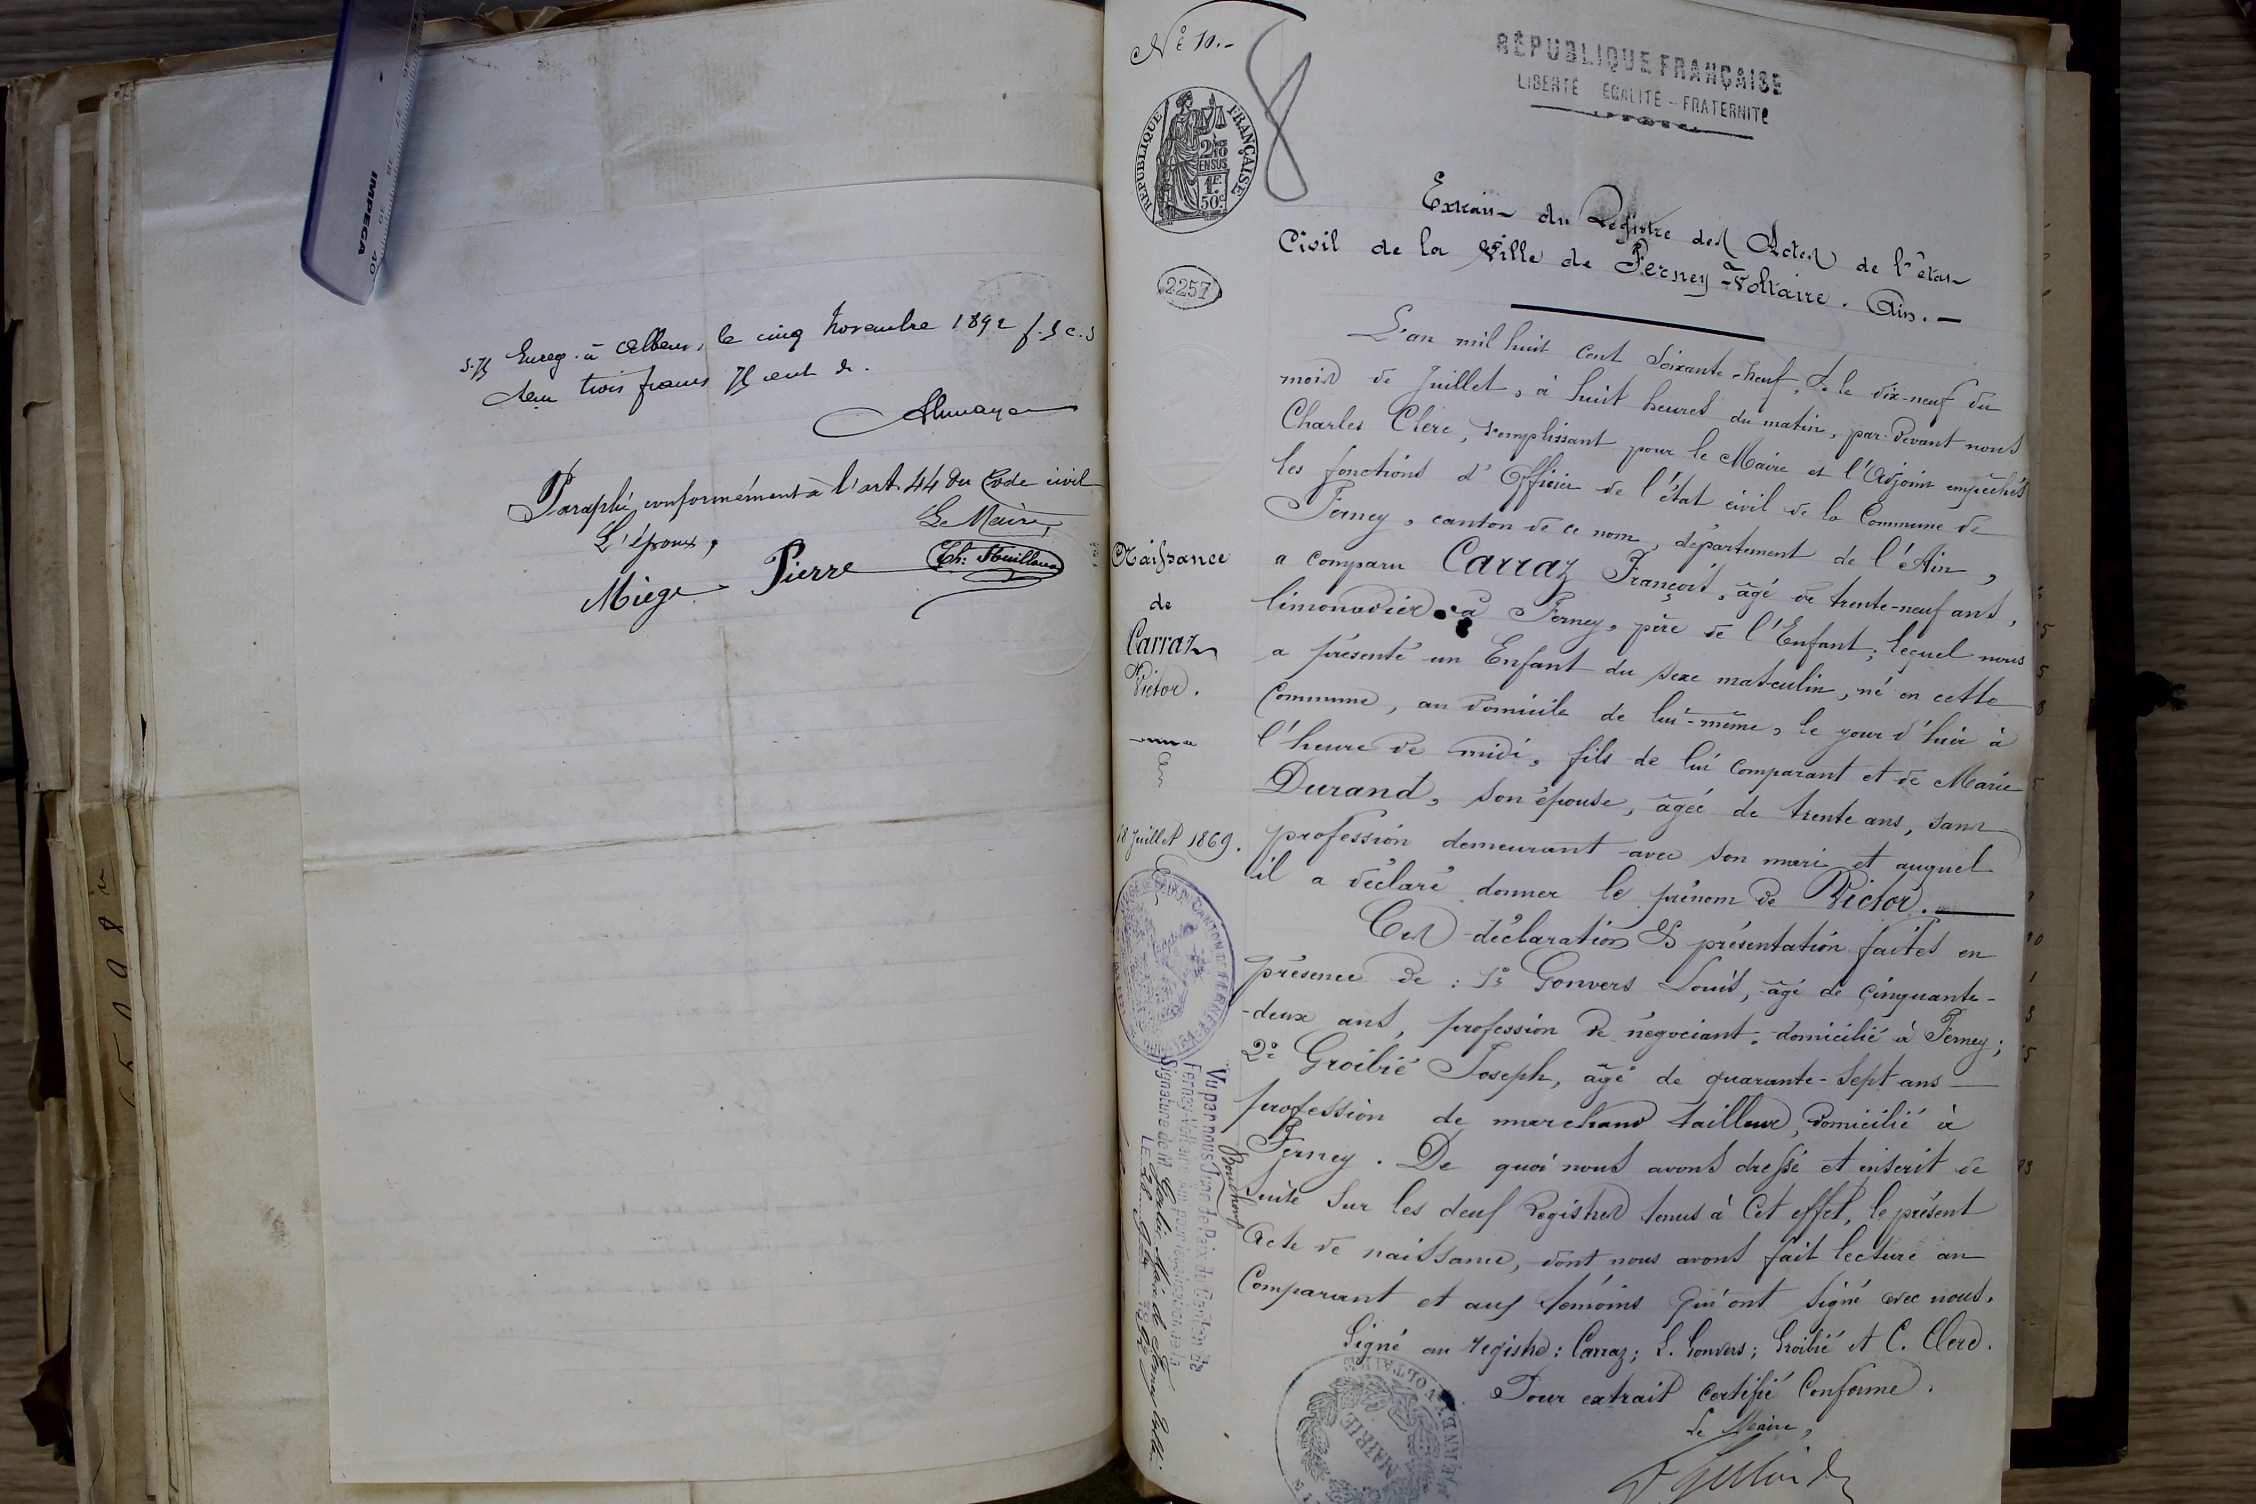 Enreg. à Albens, le cinq Novembre 1892 f. 5 c. 5
trois francs 75 cent
Paraphé conformément à l'art. 44 du Code civil
L'époux, Le Maire,
Miège Pierre
IMPEGA
40
65098
N° 10.-
8
RÉPUBLIQUE FRANÇAISE
LIBERTÉ EGALITÉ - FRATERNITÉ
RÉPUBLIQUE FRANÇAISE
2/10 EN SUS
1F. 50c
2257
Extrait du Registre des Actes de l'état
Civil de la Ville de Ferney-Voltaire. Ain.-
L'an mil huit cent soixante-neuf, & le dix-neuf du
mois de Juillet, à huit heures du matin, par-devant nous
Charles Clerc, remplissant pour le Maire et l'Adjoint empêchés
les fonctions d'Officier de l'état civil de la Commune de
Ferney, canton de ce nom, département de l'Ain,
a comparu Carraz François, âgé de trente-neuf ans,
limonadier à Ferney, père de l'Enfant; lequel nous
a présenté un Enfant du sexe masculin, né en cette
Commune, au domicile de lui-même, le jour d'hier à
l'heure de midi, fils de lui comparant et de Marie
Durand, son épouse, âgée de trente ans, sans
profession demeurant avec son mari et auquel
il a déclaré donner le prénom de Victor.
Ces déclaration & présentation faites en
présence de : 1° Gonvers Louis, âgé de cinquante-
-deux ans, profession de négociant, domicilié à Ferney;
2° Groibié Joseph, âgé de quarante-sept ans
profession de marchand tailleur, domicilié à
Ferney. De quoi nous avons dressé et inscrit de
suite sur les deux Registres tenus à cet effet, le présent
Acte de naissance, dont nous avons fait lecture au
Comparant et aux témoins qui ont signé avec nous.
Signé au registre : Carraz; L. Gonvers; Groibié et C. Clerc.
Pour extrait certifié Conforme.
Le Maire,
Naissance
de
Carraz
Victor.
18 Juillet 1869.
Vu par nous Juge de Paix du Canton de
Ferney-Voltaire, pour légalisation de la
Signature de M. Maire de Ferney-Voltaire
MAIRIE